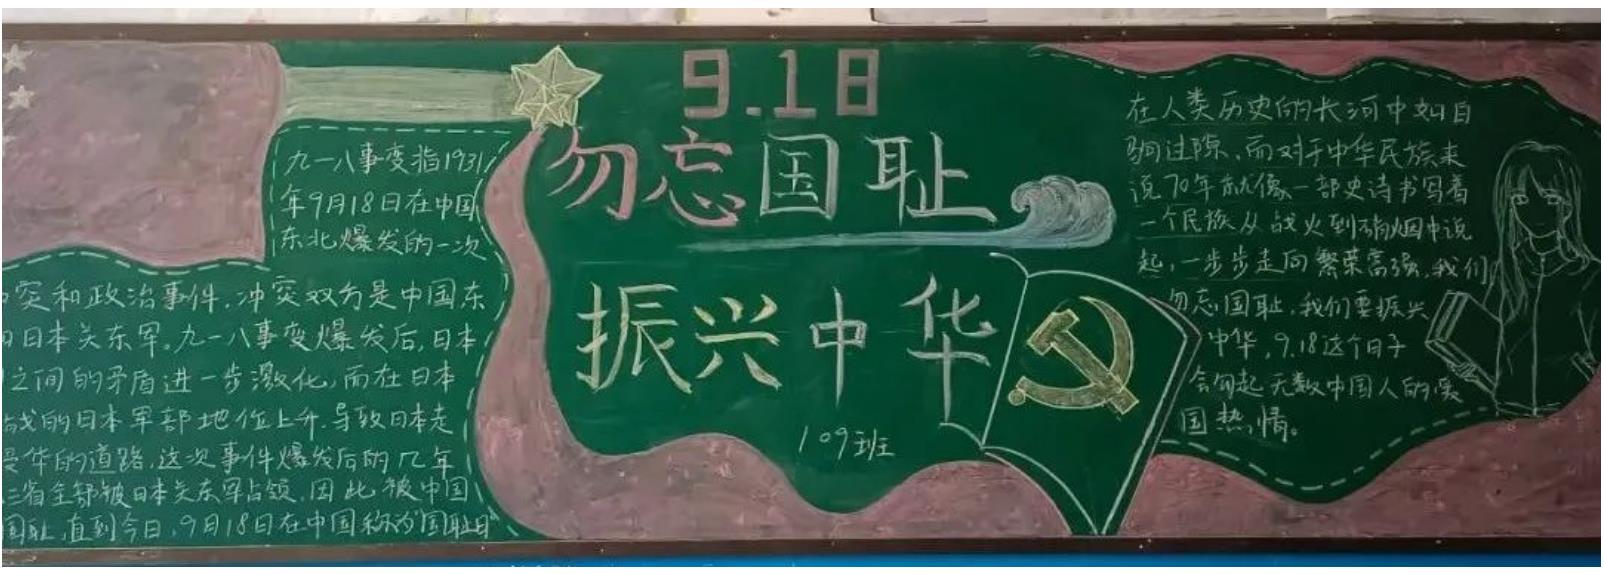 九一八事变指1931
年9月18日在中国
东北爆发的一次
突和政治事件，冲突双方是中国东
日本关东军。九一八事变爆发后，日本
之间的矛盾进一步激化，而在日本
战的日本军部地位上升，导致日本走
华的道路，这次事件爆发后的几年
三省全部被日本关东军占领，因此被中国
国耻，直到今日，9月18日在中国称为"国耻日"
9.18
勿忘国耻
振兴中华
109班
在人类历史的长河中如白
驹过隙，而对于中华民族来
说70年就像一部史诗书写着
一个民族从战火到硝烟中说
起，一步步走向繁荣富强，我们
勿忘国耻，我们要振兴
中华，9.18这个日子
会勾起无数中国人的爱
国热情。